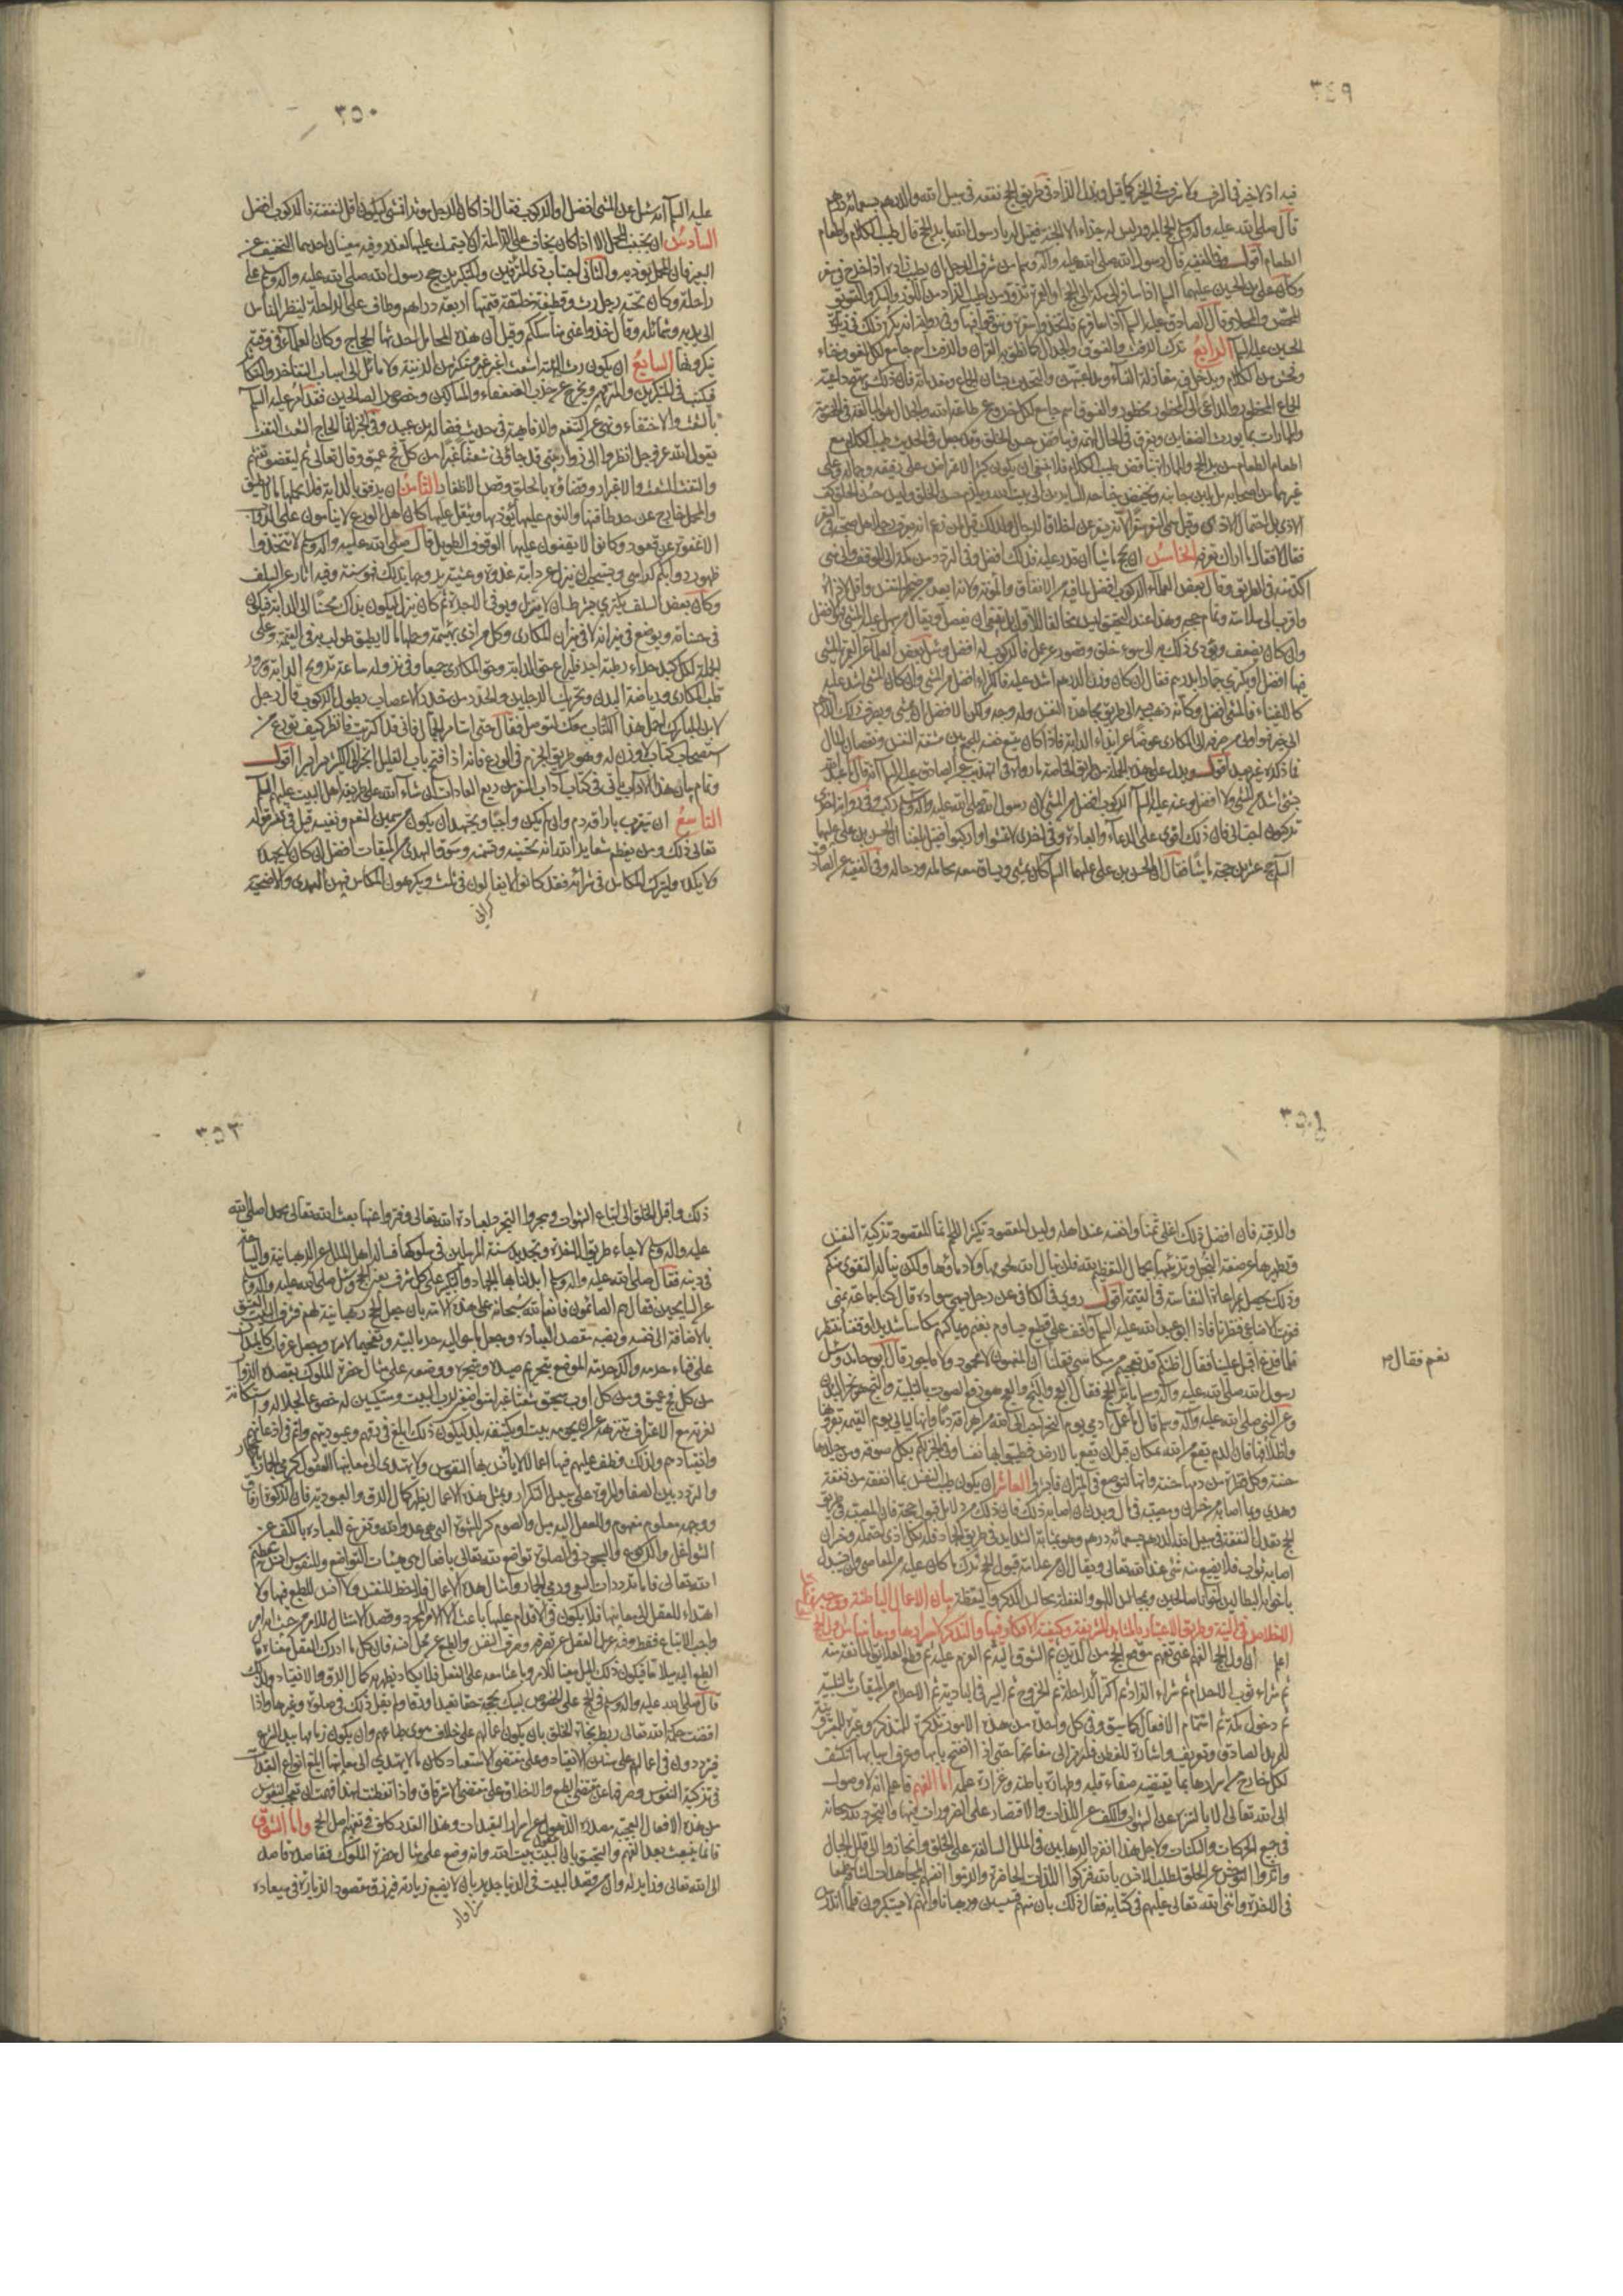 ٣٤٩
فيه اذ لا خير فى السرف ولا سرف فى الخير كما قيل وبذل الزاد فى طريق الحج نفقة فى سبيل الله والدرهم بسبعمائة درهم
قال صلى الله عليه وآله وسلم الحج المبرور ليس له جزاء الا الجنة فقيل له يا رسول الله ما بر الحج قال طيب الكلام واطعام
الطعام اقول وفى الفقيه قال رسول الله صلى الله عليه وآله وسلم من شرف الرجل ان يطيب زاده اذا خرج فى سفر
وكان على بن الحسين عليهما السلام اذا سافر الى مكة الى الحج او العمرة تزود من اطيب الزاد من اللوز والسكر والسويق
المحمص والمحلا وقال الصادق عليه السلام اذا سافرتم فاتخذوا سفرة وتنوقوا فيها وفى رواية انه يكره ذلك فى زيارة
الحسين عليه السلام الرابع ترك الرفث والفسوق والجدال كما نطق به القرآن والرفث اسم جامع لكل لغو وخناء
وفحش من الكلام ويدخل فيه مغازلة النساء ومداعبتهن والتحدث بشان الجماع ومقدماته فان ذلك يهيج داعية
الجماع المحظور والداعى الى المحظور محظور والفسوق اسم جامع لكل خروج عن طاعة الله والجدال هو المبالغة فى الخصومة
والمماراة بما يورث الضغاين ويفرق فى الحال الهمة ويناقض حسن الخلق وقد جعل فى الحديث طيب الكلام مع
اطعام الطعام من بر الحج والمماراة تناقض طيب الكلام فلا ينبغى ان يكون كثير الاعتراض على رفيقه وجماله وعلى
غيرهما من اصحابه بل يلين جانبه ويخفض جناحه للسايرين الى بيت الله ويلزم حسن الخلق وليس حسن الخلق كف
الاذى بل احتمال الاذى وقيل سمى السفر سفرا لانه يسفر عن اخلاق الرجال ولذلك قيل لمن زعم انه يعرف رجلا هل صحبته فى السفر
فقال لا فقال ما اراك تعرفه الخامس ان يحج ماشيا ان قدر عليه فذلك افضل وفى التردد من مكة الى الموقف والى منى
آكد منه فى الطريق وقال بعض العلماء الركوب افضل لما فيه من الانفاق والمؤنة ولانه ابعد من ضجر النفس واقل لاذاه
واقرب الى سلامته وتمام حجه وهذا عند التحقيق ليس مخالفا للاول بل ينبغى ان يفصل ويقال من سهل عليه المشى فهو افضل
وان كان يضعف ويؤدى ذلك به الى سوء خلق وقصور عن عمل فالركوب له افضل وسئل بعض العلماء عن العمرة المشى
فيها افضل او يكترى حمارا بدرهم فقال ان كان وزن الدرهم اشد عليه فالكراء افضل من المشى وان كان المشى اشد عليه
كالاغنياء فالمشى افضل وكأنه ذهب فيه الى طريق مجاهدة النفس وله وجه ولكن الافضل ان يمشى ويصرف ذلك الدرهم
الى خير فهو اولى من صرفه الى المكارى عوضا عن ابتذاء الدابة فاذا كان يتسع نفسه للجمع بين مشقة النفس ونقصان المال
فما ذكره غير بعيد اقول ويدل على هذه الجملة من طريق الخاصة ما رواه فى التهذيب صحيح الصادق عليه السلام انه قال ما عبد الله
بشئ اشد من المشى ولا افضل وعنه عليه السلام الركوب افضل من المشى لان رسول الله صلى الله عليه وآله وسلم ركب وفى رواية اخرى
تركبون احب الى فان ذلك اقوى على الدعاء والعبادة وفى اخرى لا تمشوا واركبوا فقيل بلغنا ان الحسن بن على عليهما
السلام حج عشرين حجة ماشيا فقال ان الحسن بن على عليهما السلام كان يمشى ويساق معه محامله ورحاله وفى الفقيه عن الصادق
٣٥٠
عليه السلام انه سئل عن المشى افضل او الركوب فقال اذا كان الرجل موسرا فمشى ليكون اقل لنفقته فالركوب افضل
السادس ان يجتنب المحمل الا اذا كان يخاف على الزاملة ان لا يستمسك عليها لعذر وفيه معنيان احدهما التخفيف عن
البعير فان المحمل يوذيه والثانى اجتناب زى المترفين والمتكبرين حج رسول الله صلى الله عليه وآله وسلم على
راحلة وكان تحته رحل رث وقطيفة خلقة قيمتها اربعة دراهم وطاف على الراحلة لينظر الناس
الى هديه وشمائله وقال خذوا عنى مناسككم وقيل ان هذه المحامل احدثها الحجاج وكان العلماء فى وقته
ينكرونها السابع ان يكون رث الهيئة اشعث اغبر غير مستكثر من الزينة ولا مائل الى اسباب التفاخر والتكاثر
فيكتب فى المتكبرين والمترفهين ويخرج عن حزب الضعفاء والمساكين وخصوص الصالحين فقد امر عليه السلام
بالشعث والاختفاء ونهى عن التنعم والرفاهية فى حديث فضالة بن عبيد وفى الخبر انما الحاج الشعث التفث
يقول الله عز وجل انظروا الى زوار بيتى قد جاؤنى شعثا غبرا من كل فج عميق وقال تعالى ثم ليقضوا تفثهم
والتفث الشعث والاغبرار وقضاؤه بالحلق وقص الاظفار الثامن ان يرفق بالدابة فلا يحملها ما لا تطيق
والمحمل خارج عن حد طاقتها والنوم عليها يؤذيها ويثقل عليها كان اهل الورع لا ينامون على الدواب
الا غفوة عن قعود وكانوا لا يقفون عليها الوقوف الطويل قال صلى الله عليه وآله وسلم لا تتخذوا
ظهور دوابكم كراسى ويستحب ان ينزل عن دابته غدوة وعشية يروحها بذلك فهو سنة وفيه اثار عن السلف
وكان بعض السلف يكترى بشرط ان لا ينزل ويوفى الاجرة ثم كان ينزل ليكون بذلك محسنا الى الدابة فيكون
فى حسناته ويوضع فى ميزانه لا فى ميزان المكارى وكل من اذى بهيمة وحملها ما لا يطيق طولب به فى القيمة وعلى
الجملة لكل كبد حراء رطبة اجر فليراع حق الدابة وحق المكارى جميعا وفى نزوله ساعة ترويح الدابة وسرور
قلب المكارى ورياضة البدن وتحريك الرجلين والحذر من خدر الاعصاب بطول الركوب قال رجل
لابن المبارك احمل هذا الكتاب معك لتوصله فقال حتى استأمر الجمال فانى قد اكتريت فانظر كيف تورع من
استصحاب كتاب لا وزن له وهو طريق الحزم فى الورع فانه اذا فتح باب القليل انجر الى الكثير يسيرا يسيرا اقول
وتمام بيان هذا الآداب ياتى فى كتاب آداب السفر من ربع العادات ان شاء الله على طريقة اهل البيت عليهم السلام
التاسع ان يتقرب باراقة دم وان لم يكن واجبا ويجتهد ان يكون من سمين النعم ونفيسه قيل فى تفسير قوله
تعالى ذلك ومن يعظم شعاير الله انه تحسينه وتسمينه وسوق الهدى من الميقات افضل ان كان لا يجهده
ولا يكده وليترك المكاس فى شرائه فقد كانوا لا يغالون فى ثلث ويكرهون المكاس فيهن الهدى والاضحية
٣٥١
والرقبة فان افضل ذلك اغلى ثمنا وانفسه عند اهله وليس المقصود تكثير اللحم انما المقصود تزكية النفس
وتطهيرها عن صفة البخل وتزيينها بجمال التعظيم لله فلن ينال الله لحومها ولا دماؤها ولكن يناله التقوى منكم
وذلك يحصل بمراعاة النفاسة فى القيمة اقول روى فى الكافى عن رجل يسمى سواده قال كنا جماعة بمنى
فعزت الاضاحى فنظرنا فاذا ابو عبد الله عليه السلام واقف على قطيع يساوم بغنم ويماكسهم مكاسا شديدا فوقفنا ننتظر
فلما فرغ اقبل علينا فقال اظنكم قد تعجبتم من مكاسى فقلنا
نعم فقال
ان المغبون لا محمود ولا مأجور قال ابو حامد وسئل
رسول الله صلى الله عليه وآله وسلم ما بر الحج فقال العج والثج والعج هو رفع الصوت بالتلبية والثج هو نحر البدن
وعن النبى صلى الله عليه وآله وسلم قال ما عمل آدمى يوم النحر احب الى الله من اهراقه دما وانها لياتى يوم القيمة بقرونها
واظلافها فان الدم يقع من الله بمكان قبل ان يقع بالارض فطيبوا بها نفسا وفى الخبر لكم بكل صوفة من جلدها
حسنة وكل قطرة من دمها حسنة وانها لتوضع فى الميزان فابشروا العاشر ان يكون طيب النفس بما انفقه من نفقة
وهدى وبما اصابه من خسران ومصيبة فى مال وبدن ان اصابه ذلك فان ذلك من دلائل قبول حجه فان المصيبة فى طريق
الحج تعدل النفقة فى سبيل الله الدرهم بسبعمائة درهم وهو بمثابة الشدايد فى طريق الجهاد فله بكل اذى احتمله وخسران
اصابه ثواب فلا يضيع منه شئ عند الله تعالى ويقال ان من علامة قبول الحج ترك ما كان عليه من المعاصى وان يتبدل
باخوانه البطالين اخوانا صالحين وبمجالس اللهو والغفلة مجالس الذكر واليقظة بيان الاعمال الباطنة ووجه
الاخلاص فى النية وطريق الاعتبار بالمشاهد الشريفة وكيفية الافتكار فيها والتذكر لاسرارها ومعانيها من اول الحج
اعلم ان اول الحج الفهم اعنى تفهم موقع الحج من الدين ثم الشوق اليه ثم العزم عليه ثم قطع العلايق المانعة منه
ثم شراء ثوب الاحرام ثم شراء الزاد ثم اكتراء الراحلة ثم الخروج ثم السير فى البادية ثم الاحرام من الميقات بالتلبية
ثم دخول مكة ثم استتمام الافعال كما سبق وفى كل واحد من هذه الامور تذكرة للمتذكر وعبرة للمعتبر وتنبيه
للمريد الصادق وتعريف واشارة للفطن فلنرمز الى مفاتحها حتى اذا انفتح بابها وعرف اسبابها انكشف
لكل خارج من اسرارها بما يقتضيه صفاء قلبه وطهارة باطنه وغزارة علمه اما الفهم فاعلم انه لا وصول
الى الله تعالى الا بالتنزه عن الشهوات والكف عن اللذات والاقتصار على الضرورات فيها والتجرد لله سبحانه
فى جميع الحركات والسكنات ولاجل هذا انفرد الرهبانيين فى الملل السالفة عن الخلق وانحازوا الى قلل الجبال
وآثروا التوحش عن الخلق لطلب الانس بالله فتركوا اللذات الحاضرة والزموا انفسهم المجاهدات الشاقة طمعا
فى الآخرة واثنى الله تعالى عليهم فى كتابه فقال ذلك بان منهم قسيسين ورهبانا وانهم لا يستكبرون فلما اندرس
٣٥٣
ذلك واقبل الخلق الى اتباع الشهوات وهجروا التجرد لعبادة الله تعالى وفتروا عنها بعث الله تعالى محمدا صلى الله
عليه وآله وسلم لاحياء طريق الآخرة وتجديد سنة المرسلين فى سلوكها فساله اهل الملل عن الرهبانية والسياحة
فى دينه فقال صلى الله عليه وآله وسلم ابدلنا بها الجهاد والتكبير على كل شرف يعنى الحج وسئل صلى الله عليه وآله وسلم
عن السايحين فقال هم الصائمون فانعم الله سبحانه على هذه الامة بان جعل الحج رهبانية لهم فشرف البيت العتيق
بالاضافة الى نفسه ونصبه مقصدا لعباده وجعل ما حواليه حرما لبيته وتفخيما لامره وجعل عرفات كالميدان
على فناء حرمه واكد حرمة الموضع بتحريم صيده وشجره ووضعه على مثال حضرة الملوك يقصده الزوار
من كل فج عميق ومن كل اوب سحيق شعثا غبرا متواضعين لرب البيت ومستكينين له خضوعا لجلاله واستكانة
لعزته مع الاعتراف بتنزهه عن ان يحويه بيت او يكتنفه بلد ليكون ذلك ابلغ فى رقهم وعبوديتهم واتم فى اذعانهم
وانقيادهم ولذلك وظف عليهم فيها اعمالا لا يأنس بها النفوس ولا يهتدى الى معانيها العقول كرمى الجمار
والتردد بين الصفا والمروة على سبيل التكرار وبمثل هذه الاعمال يظهر كمال الرق والعبودية فان الزكوة ارفاق
ووجهه معلوم مفهوم وللعقل اليه ميل والصوم كسر للشهوة التى هى عدو الله وتفرغ للعبادة بالكف عن
الشواغل والركوع والسجود فى الصلوة تواضع لله تعالى بافعال هى هيئات التواضع وللنفوس انس بتعظيم
الله تعالى فاما ترددات السعى ورمى الجمار وامثال هذه الاعمال فلا حظ للنفس ولا انس للطبع فيها ولا
اهتداء للعقل الى معانيها فلا يكون فى الاقدام عليها باعث الا الامر المجرد وقصد الامتثال للامر من حيث انه امر
واجب الاتباع فقط وفيه عزل العقل عن تصرفه وصرف النفس والطبع عن محل انسه فان كل ما ادرك العقل معناه مال
الطبع اليه ميلا ما فيكون ذلك الميل معينا للامر وباعثا معه على الفعل فلا يكاد يظهر به كمال الرق والانقياد ولذلك
قال صلى الله عليه وآله وسلم فى الحج على الخصوص لبيك بحجة حقا تعبدا ورقا ولم يقل ذلك فى صلوة وغيرها واذا
اقتضت حكمة الله تعالى ربط نجاة الخلق بان يكون اعمالهم على خلاف هوى طباعهم وان يكون زمامها بيد الشرع
فيترددون فى اعمالهم على سنن الانقياد وعلى مقتضى الاستعباد كان ما لا يهتدى الى معانيها ابلغ انواع التعبدات
فى تزكية النفوس وصرفها عن مقتضى الطبع والاخلاق على مقتضى الاسترقاق واذا تفطنت لهذا فهمت ان تعجب النفوس
من هذه الافعال العجيبة مصدره الذهول عن اسرار التعبدات وهذا القدر كاف فى تفهم اصل الحج واما الشوق
فانما ينبعث بعد الفهم والتحقق بان البيت بيت الله وانه وضع على مثال حضرة الملوك فقاصده قاصد
الى الله تعالى وزاير له وان من قصد البيت فى الدنيا جدير بان لا يضيع زيارته فيرزق مقصود الزيارة فى ميعاده